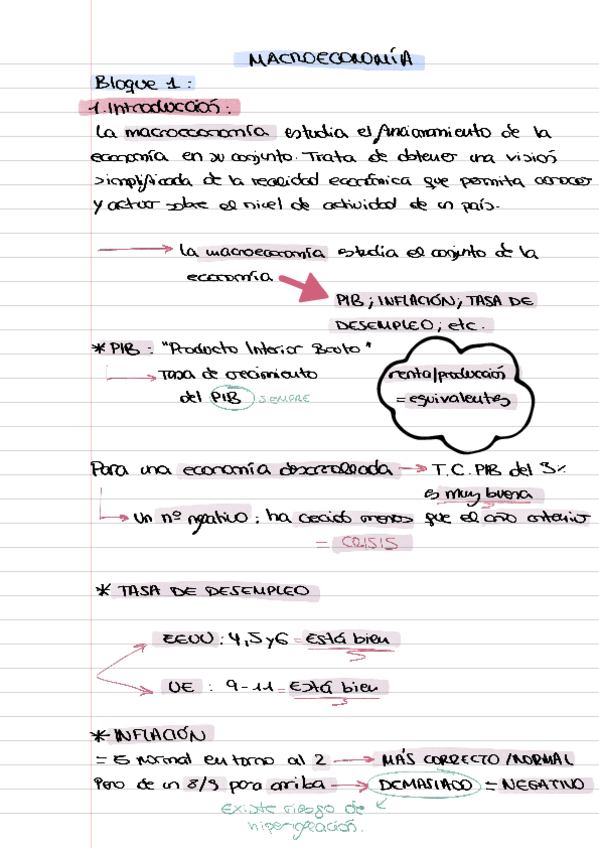 MACROECONOMÍA
Bloque 1:
1. Introducción:
La macroeconomía estudia el funcionamiento de la
economía en su conjunto. Trata de obtener una visión
simplificada de la realidad económica que permita conocer
y actuar sobre el nivel de actividad de un país.
→ La macroeconomía estudia el conjunto de la
economía
PIB; INFLACIÓN; TASA DE
DESEMPLEO; etc.
* PIB: "Producto Interior Bruto"
→ Tasa de crecimiento
del PIB SIEMPRE
renta/producción
= equivalentes
Para una economía desarrollada → T.C. PIB del 3%
es muy buena
→ Un nº negativo: ha crecido menos que el año anterior
= CRISIS
* TASA DE DESEMPLEO
EEUU: 4, 5 y 6 = Está bien
UE: 9-11 = Está bien
* INFLACIÓN
= Es normal en torno al 2 → MÁS CORRECTO/NORMAL
Pero de un 8/9 para arriba → DEMASIADO = NEGATIVO
Existe riesgo de
hiperinflación.